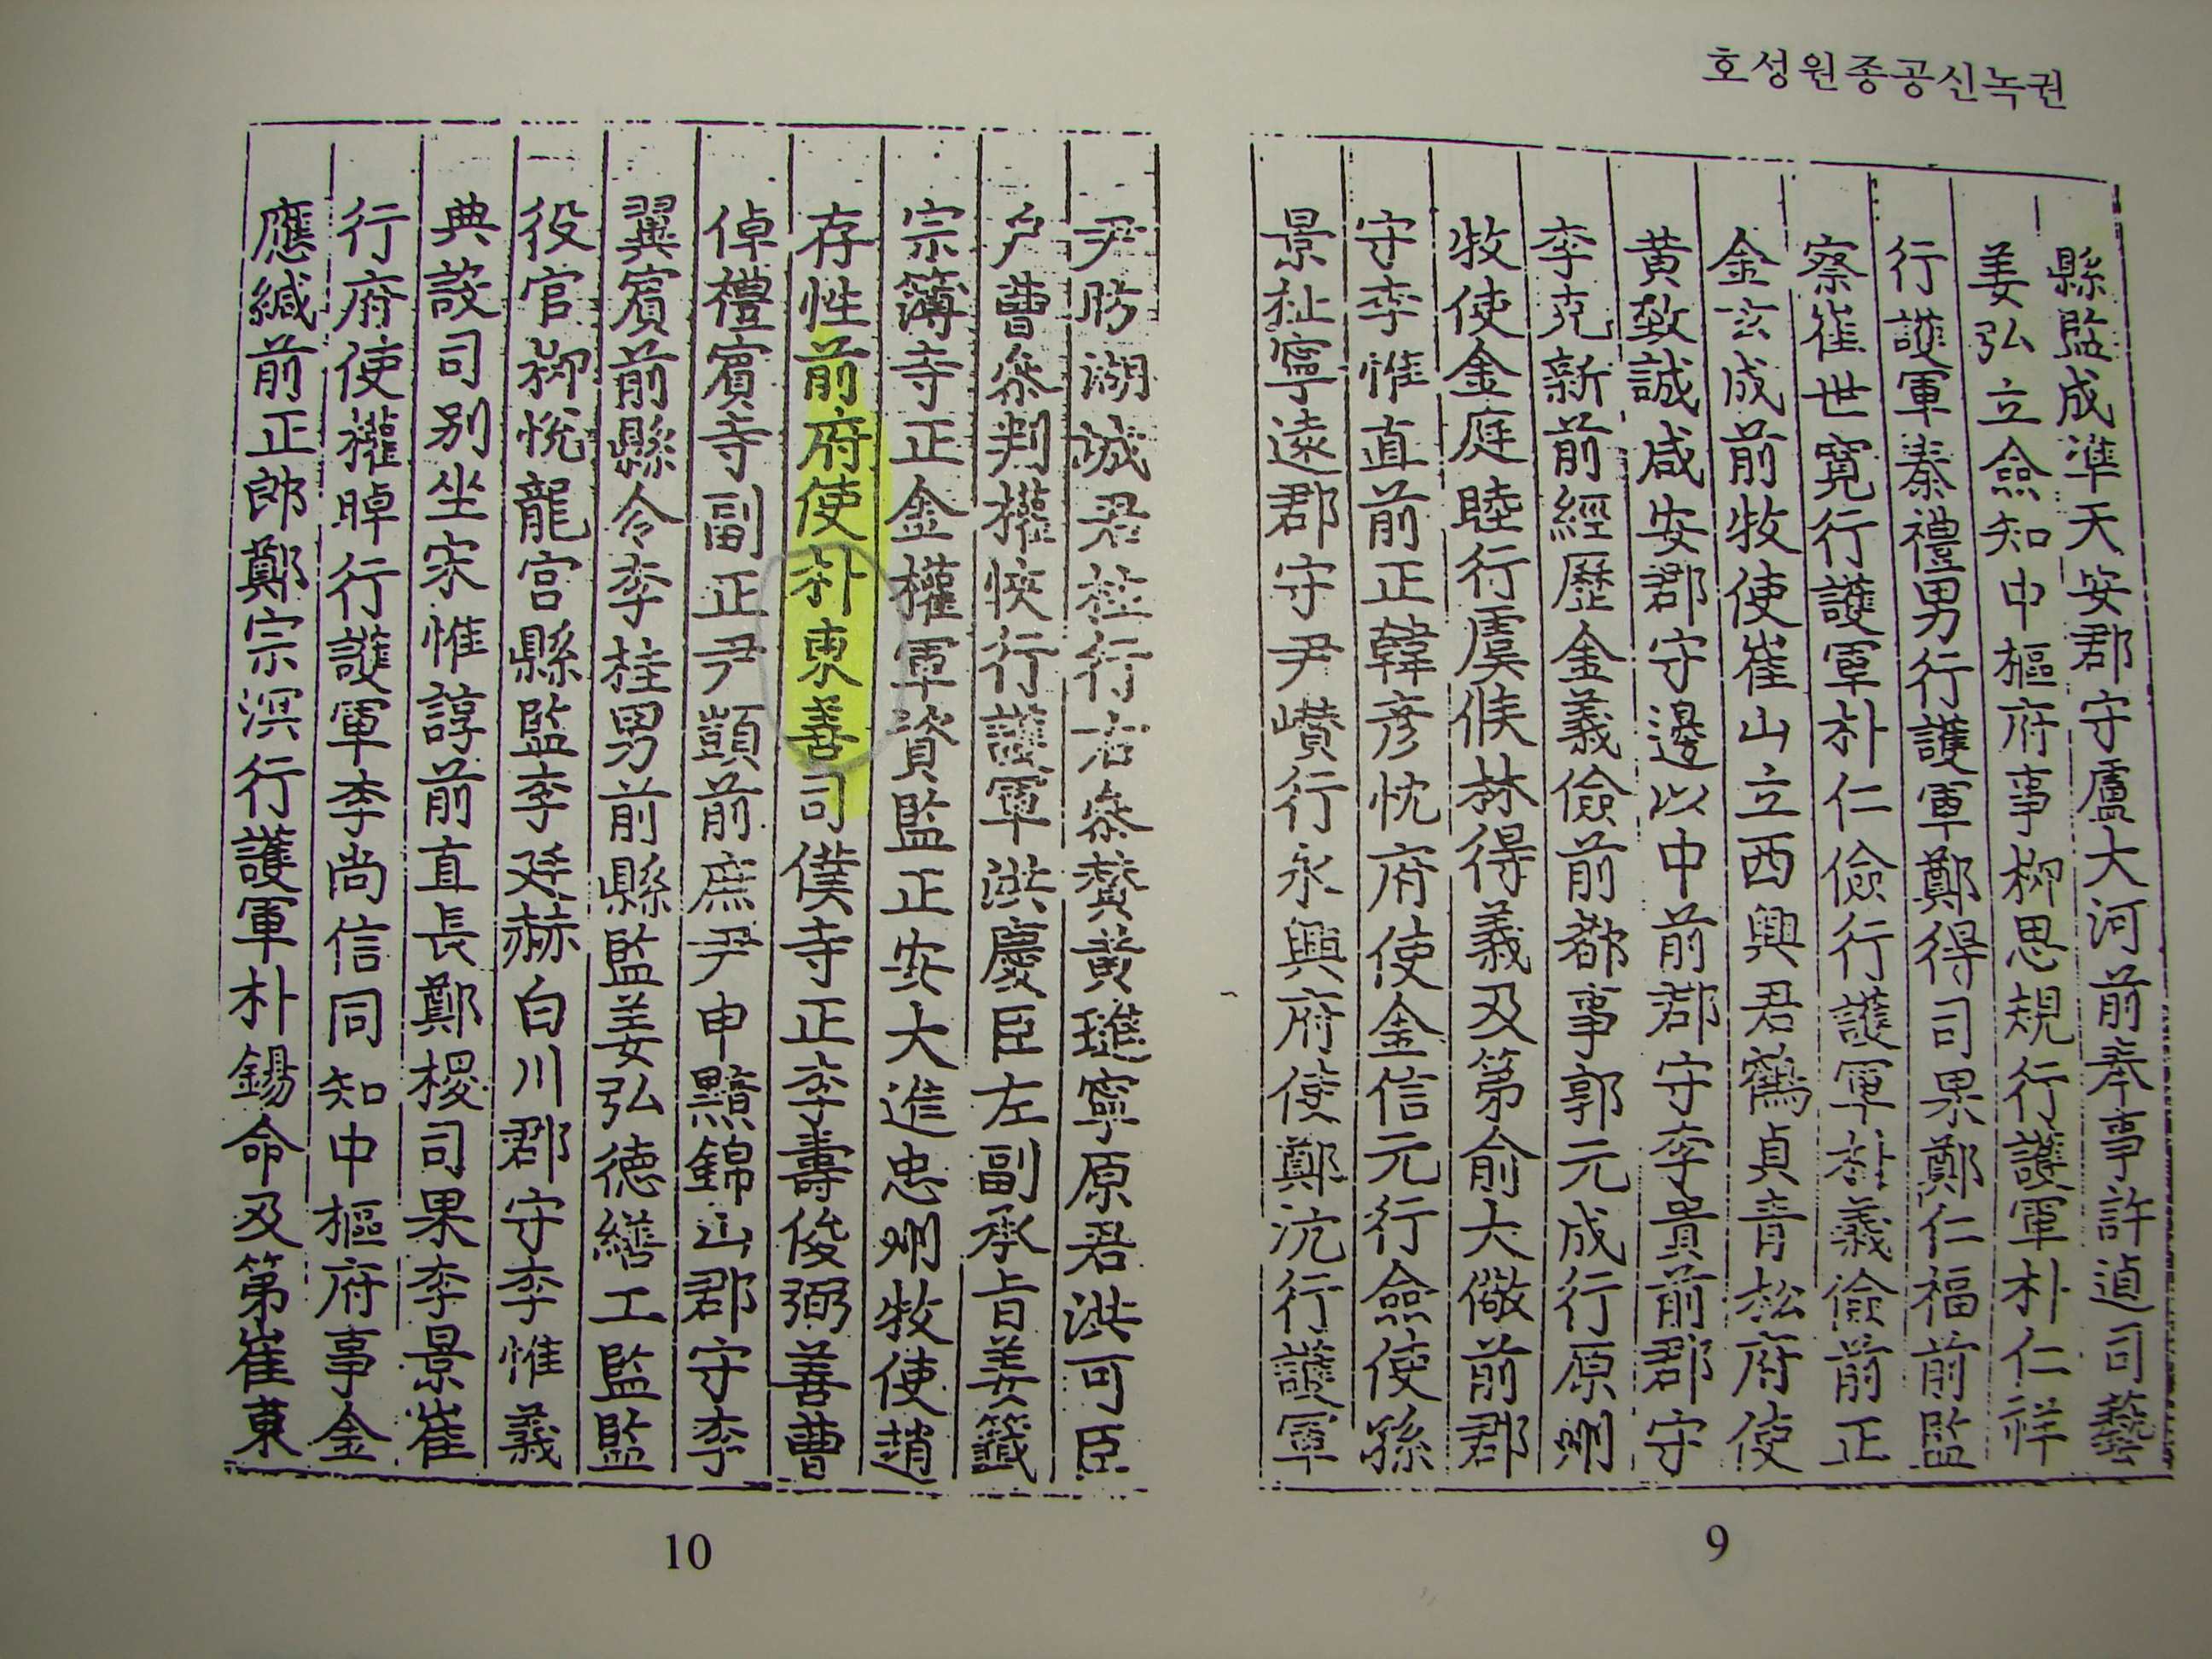 호성원종공신녹권
縣監成準天安郡守盧大河前奉事許逌司藝
姜弘立僉知中樞府事柳思規行護軍朴仁祥
行護軍秦禮男行護軍鄭得司果鄭仁福前監
察崔世寬行護軍朴仁儉行護軍林義儉前正
金玄成前牧使崔山立西興君鶴貞青松府使
黄致誠咸安郡守邊以中前郡守李貴前郡守
李克新前經歷金義儉前都事郭元成行原州
牧使金庭睦行虞候林得義及第俞大儆前郡
守李惟直前正韓彦忱府使金信元行僉使孫
景祉寧遠郡守尹巑行永興府使鄭沆行護軍
9
尹昉湖城君柱行右參賛黄璡寧原君洪可臣
户曹參判權悏行護軍洪慶臣左副承旨姜籤
宗簿寺正金權軍資監正安大進忠州牧使趙
存性前府使朴東善司僕寺正李壽俊弼善曹
倬禮賓寺副正尹顗前庶尹申黯錦山郡守李
翼賓前縣令李桂男前縣監姜弘德繕工監監
役官柳悅龍宮縣監李發赫白川郡守李惟義
典設司别坐宋惟諄前直長鄭㮨司果李景崔
行府使權晫行護軍李尚信同知中樞府事金
應緘前正郎鄭宗溟行護軍朴錫命及第崔東
10